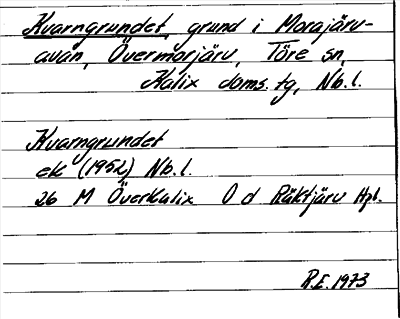 Kvarngrundet, grund i Morajärv-
avan, Övermorjärv, Töre sn,
Kalix doms. tg, Nb. l.
Kvarngrundet
ek (1952) Nb. l.
26 M Överkalix 0 d Räktjärv Hpl.
R.E. 1973